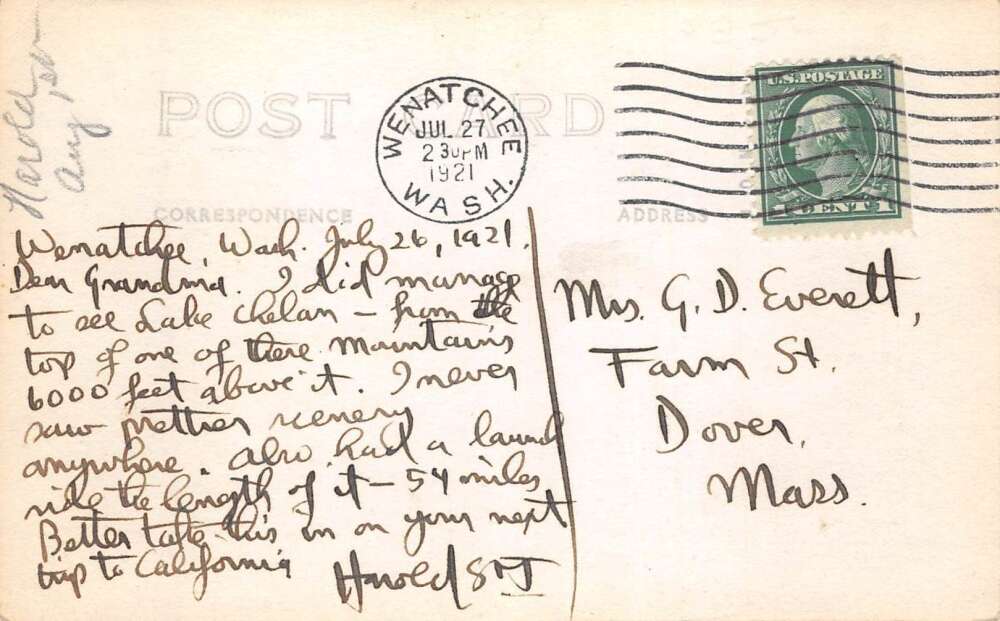 Harold
Aug,
POST CARD
WENATCHEE
JUL 27
2 30 PM
1921
WASH.
U.S. POSTAGE
1 CENT 1
CORRESPONDENCE
ADDRESS
Wenatchee, Wash. July 26, 1921.
Dear Grandma. I did manage
to see Lake Chelan – from the
top of one of these mountains
6000 feet above it. I never
saw prettier scenery
anywhere. Also had a launch
ride the length of it – 54 miles
Better take this in on your next
trip to California
Harold
Mrs. G. D. Everett,
Farm St.
Dover,
Mass.